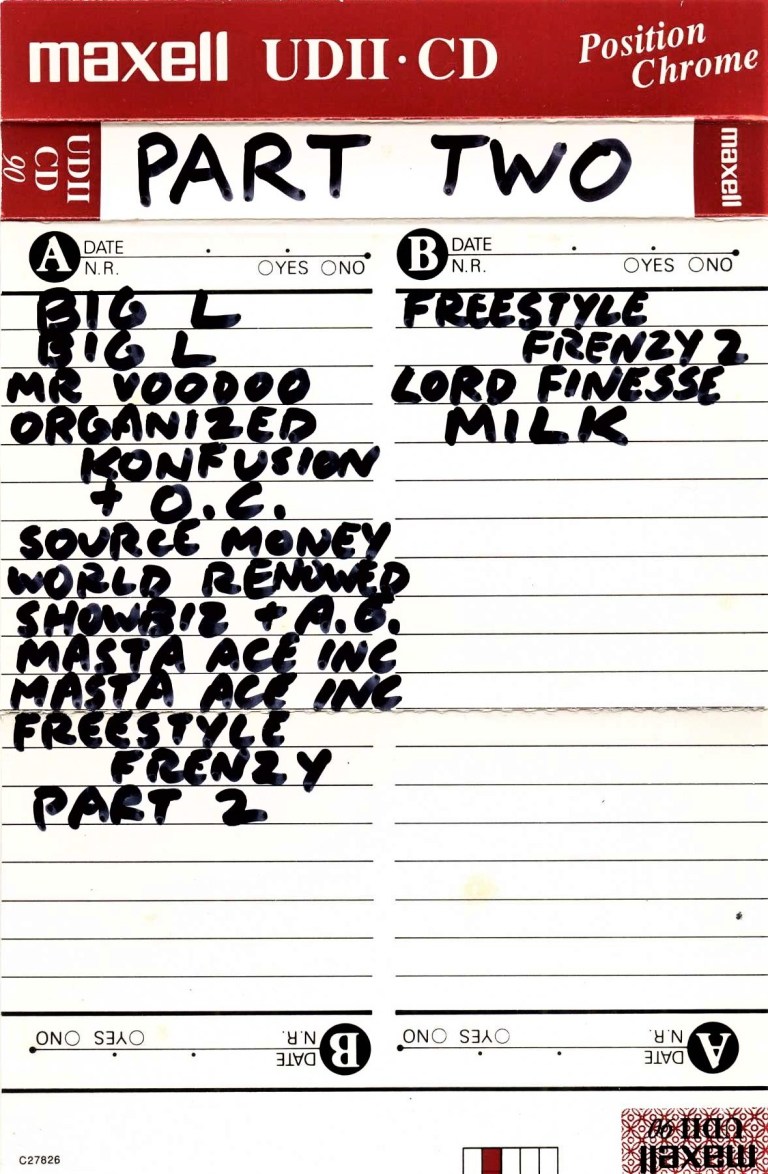 maxell UDII·CD Position Chrome
UDII CD 90 PART TWO maxell
A DATE
N.R. YES NO
BIG L
BIG L
MR VOODOO
ORGANIZED
KONFUSION
+ O.C.
SOURCE MONEY
WORLD RENOWED
SHOWBIZ + A.G.
MASTA ACE INC
MASTA ACE INC
FREESTYLE
FRENZY
PART 2
B DATE
N.R. YES NO
FREESTYLE
FRENZY 2
LORD FINESSE
MILK
B DATE
N.R. YES NO
A DATE
N.R. YES NO
C27826
maxell
UDII 90